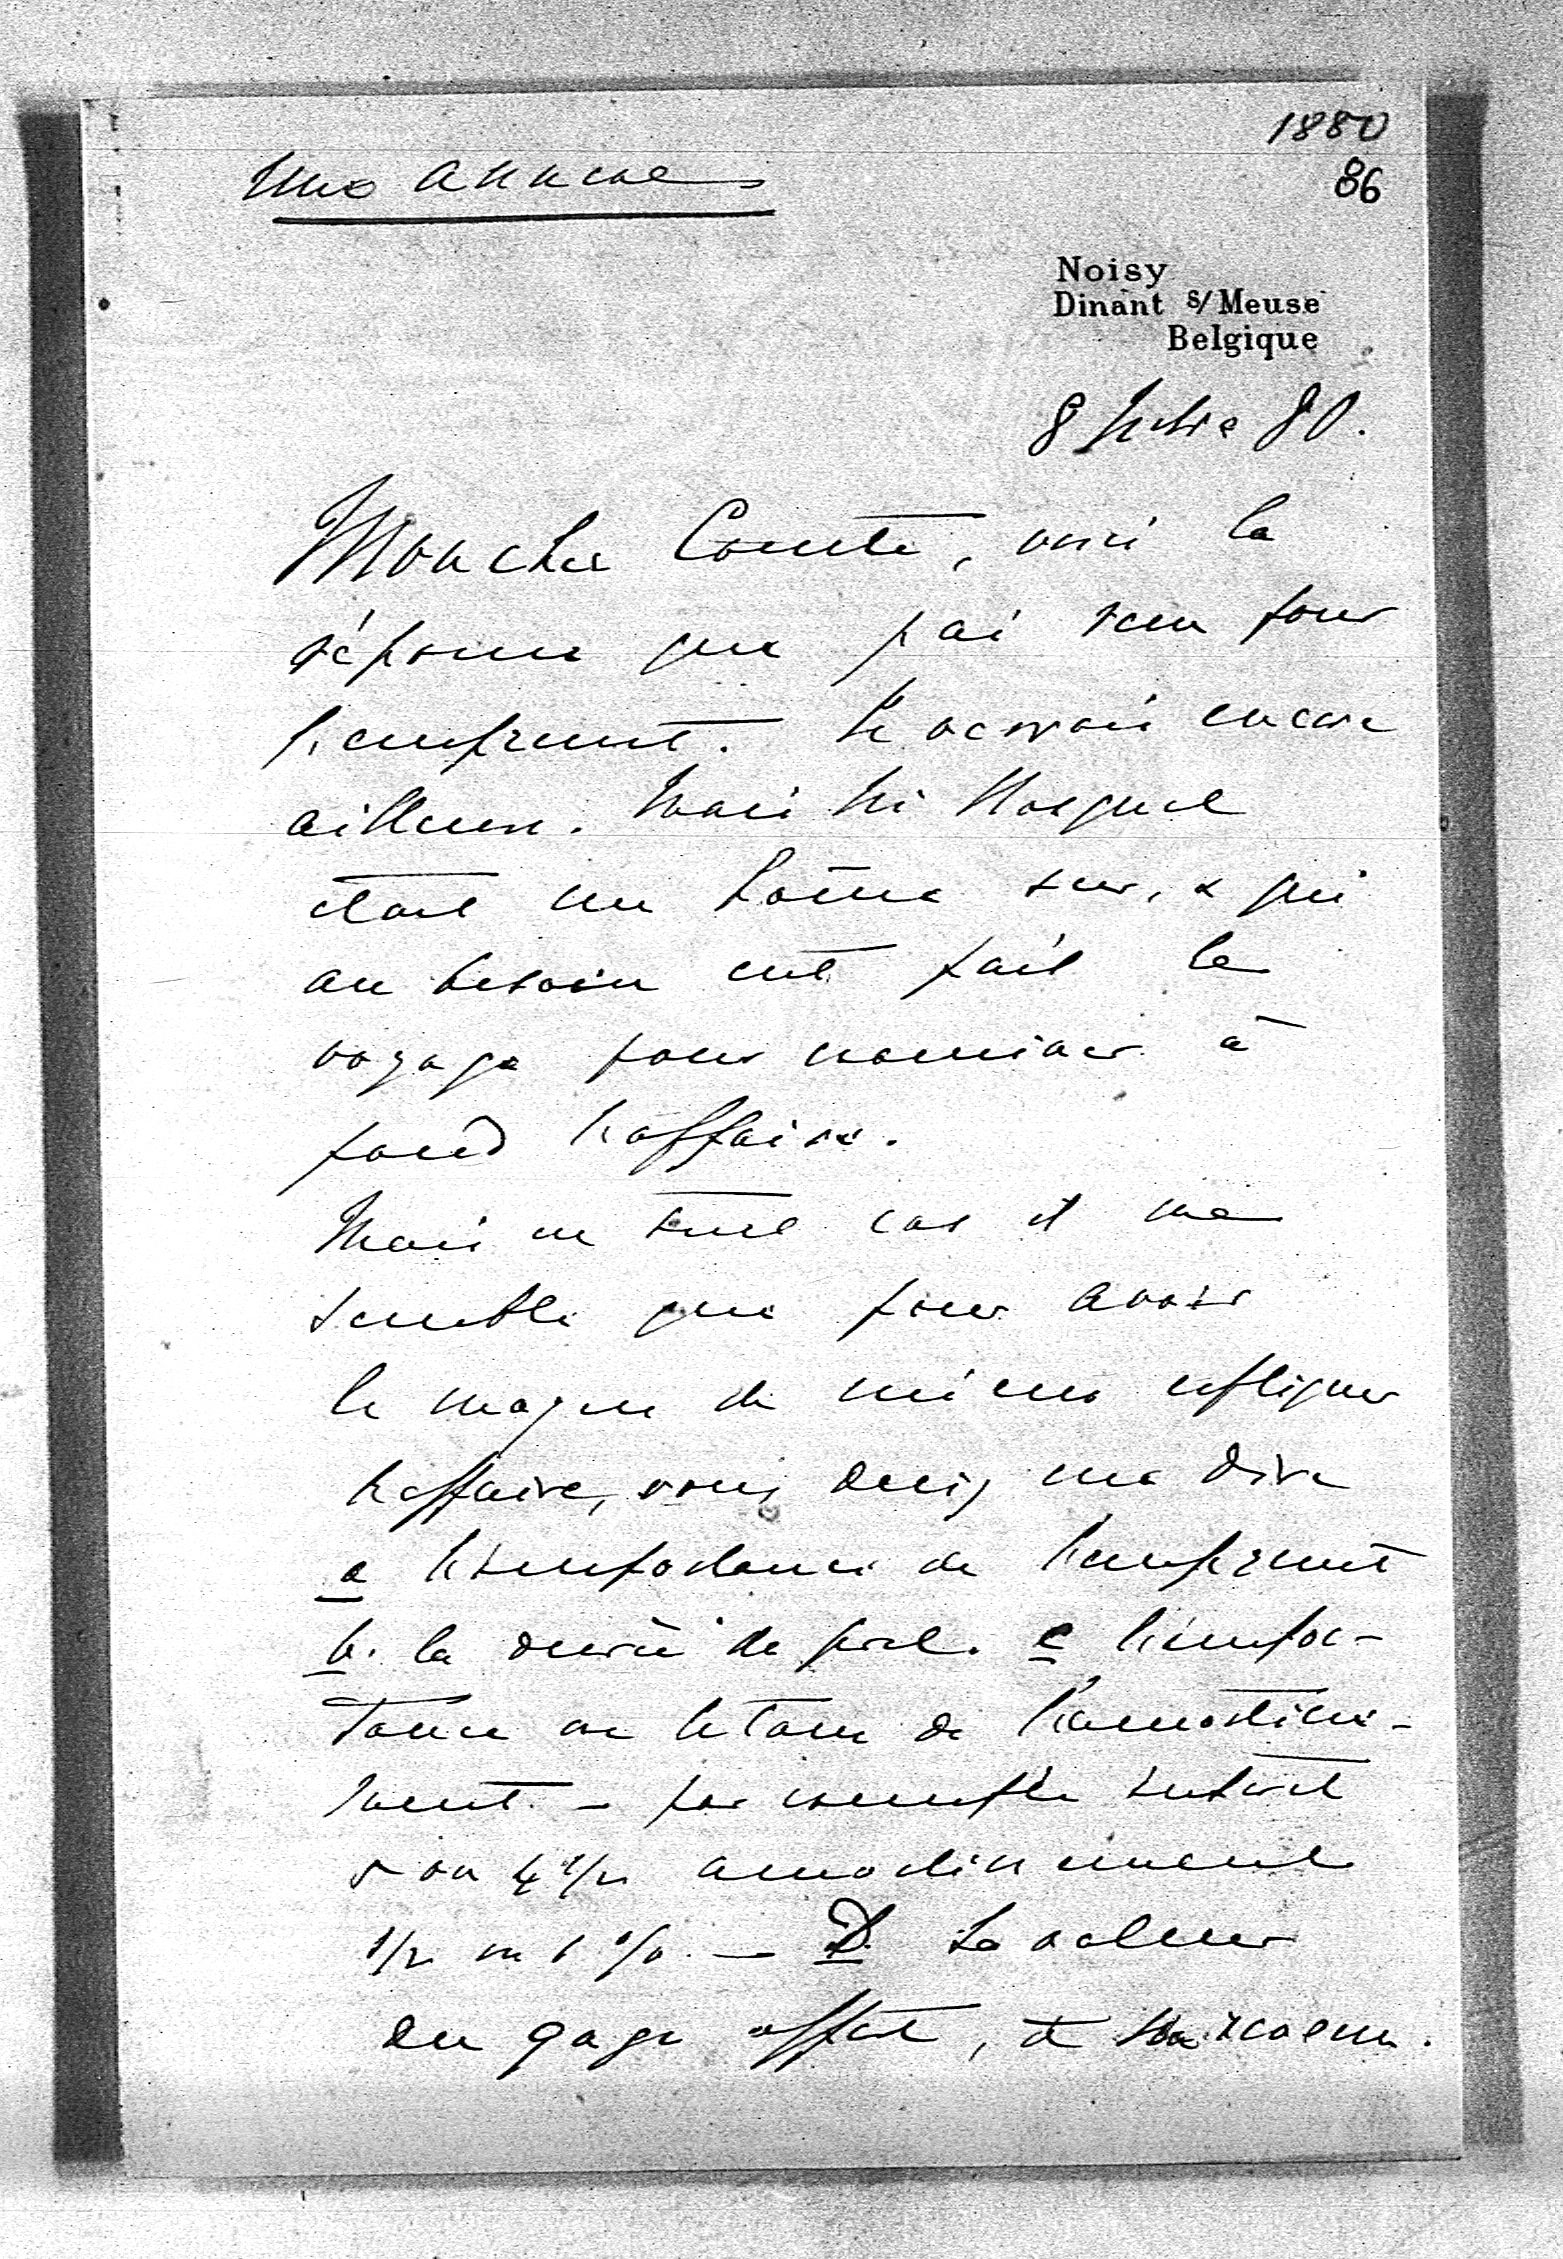 1880
86
Une annexe
Noisy
Dinant s/Meuse
Belgique
8 80.
Mon cher Comte, voici la
réponse que j'ai reçu pour
l'emprunt. Je verrai encore
ailleurs. Mais Mr
était un home sur, & qui
au besoin eut fait le
voyage pour examiner à
fond l'affaire.
Mais en tout cas il me
semble que pour avoir
le moyen de mieux expliquer
l'affaire, vous deviez me dire
a l'importance de l'emprunt
b. la durée du pret. c l'impor-
tance ou le taux de l'amortisse-
ment. – par exemple interet
5 ou 4 1/2 amortissement
1/2 ou 1 %. – D. La valeur
du gage offert, et sa